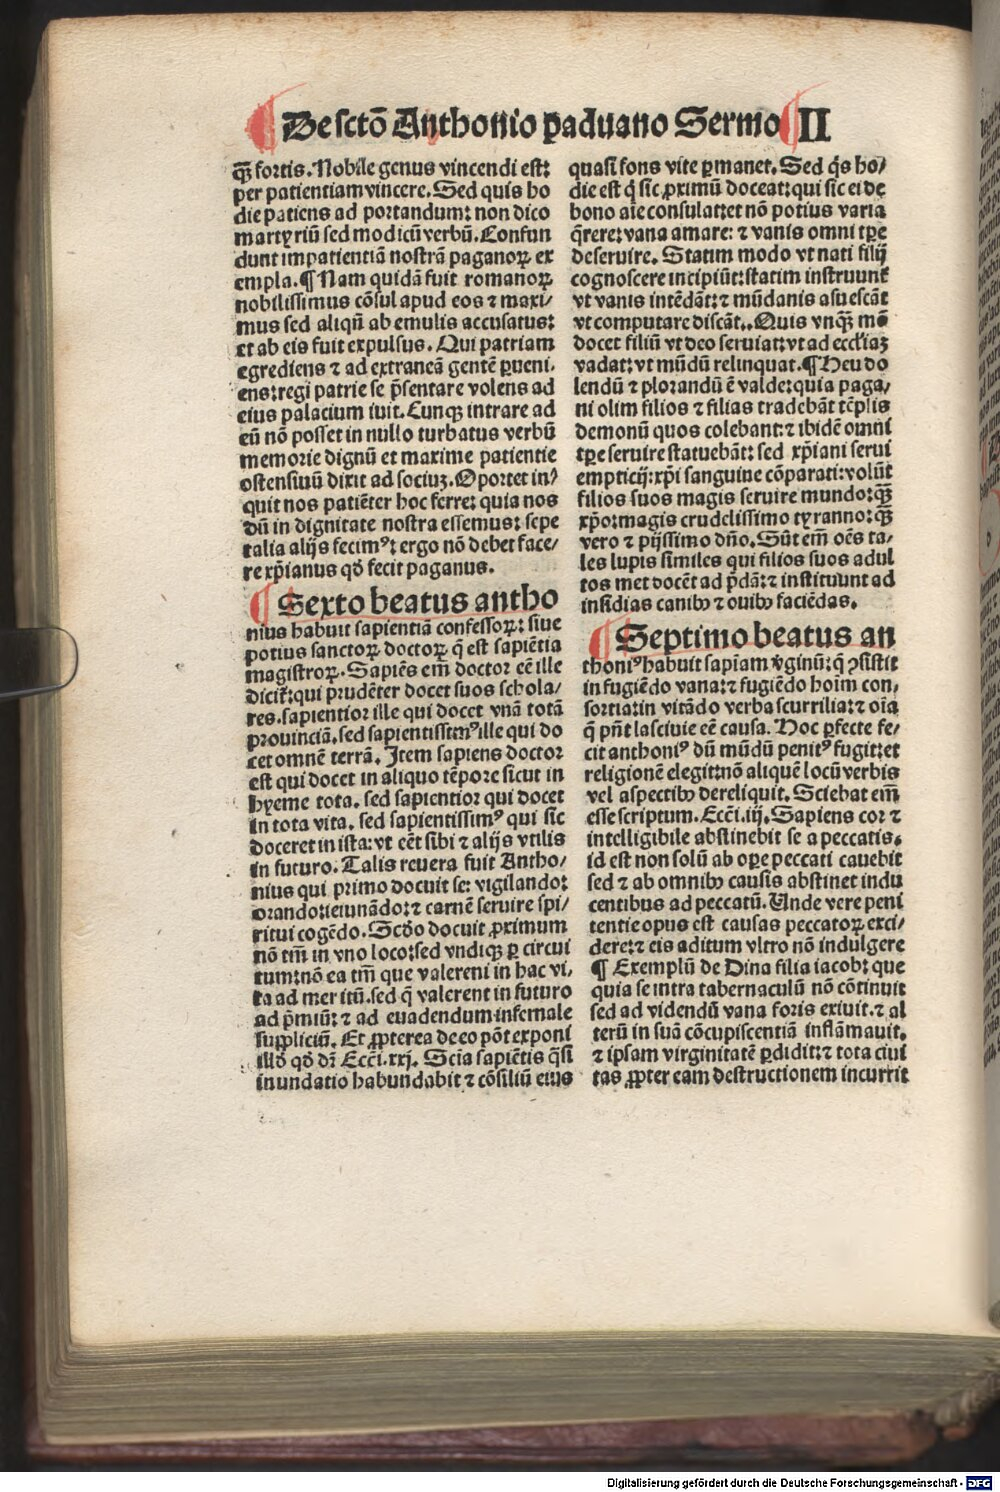 ¶ De sctō Anthonio paduano Sermo ¶ II
qꝫ̄ fortis. Nobile genus vincendi est:
per patientiam vincere. Sed quis ho
die patiens ad portandum: non dico
martyriū sed modicū verbū. Confun
dunt impatientiā nostrā paganoꝝ ex
empla. ¶ Nam quidā fuit romanoꝝ
nobilissimus cōsul apud eos ⁊ maxi/
mus sed aliqn̄ ab emulis accusatus:
et ab eis fuit expulsus. Qui patriam
egrediens ⁊ ad extraneā gentē ꝑueni/
ens: regi patrie se p̄sentare volens ad
eius palacium iuit. Cunqꝫ intrare ad
eū nō posset in nullo turbatus verbū
memorie dignū et maxime patientie
ostensiuū dixit ad sociuꝫ. Oportet in/
quit nos patiēter hoc ferre: quia nos
dū in dignitate nostra essemus: sepe
talia alijs fecimꝰ: ergo nō debet face/
re xp̄ianus qd̄ fecit paganus.
¶ Sexto beatus antho
nius habuit sapientiā confessoꝝ: siue
potius sanctoꝝ doctoꝝ q̄ est sapiētia
magistroꝝ. Sapiēs em̄ doctor eē ille
dicit̄: qui prudēter docet suos schola/
res. sapientior ille qui docet vnā totā
prouinciā. sed sapientissimꝰ ille qui do
cet omnē terrā. Item sapiens doctor
est qui docet in aliquo tēpore sicut in
hyeme tota. sed sapientior qui docet
in tota vita. sed sapientissimꝰ qui sic
doceret in ista: vt eēt sibi ⁊ alijs vtilis
in futuro. Talis reuera fuit Antho/
nius qui primo docuit se: vigilando:
orando: ieiunādo: ⁊ carnē seruire spi/
ritui cogēdo. Scd̄o docuit ꝓximum
nō tm̄ in vno loco: sed vndiqꝫ ꝑ circui
tum: nō ea tm̄ que valerent in hac vi/
ta ad meritū. sed q̄ valerent in futuro
ad p̄miū: ⁊ ad euadendum infernale
suppliciū. Et ꝓpterea de eo pōt exponi
illd̄ qd̄ dr̄ Ecci. xxj. Scia sapiētis q̄si
inundatio habundabit ⁊ cōsiliū eius
quasi fons vite ꝑmanet. Sed q̄s ho/
die est q̄ sic ꝓximū doceat: qui sic ei de
bono aīe consulat: et nō potius varia
q̄rere: vana amare: ⁊ vanis omni tꝑe
deseruire. Statim modo vt nati filij
cognoscere incipiūt: statim instruunt̄
vt vanis intēdāt: ⁊ mūdanis assuescāt
vt computare discāt. Quis vnqꝫ̄ mō
docet filiū vt deo seruiat: vt ad eccl̄iaꝫ
vadat: vt mūdū relinquat. ¶ Heu do
lendū ⁊ plorandū ē valde: quia paga/
ni olim filios ⁊ filias tradebāt tēplis
demonū quos colebant: ⁊ ibidē omni
tꝑe seruire statuebāt: sed xp̄iani serui
empticij: xp̄i sanguine cōparati: volūt
filios suos magis seruire mundo: qꝫ̄
xp̄o: magis crudelissimo tyranno: qꝫ̄
vero ⁊ pijssimo dn̄o. Sūt em̄ oēs ta/
les lupis similes qui filios suos adul
tos met docēt ad p̄dā: ⁊ instituunt ad
insidias canibꝫ ⁊ ouibꝫ faciēdas.
¶ Septimo beatus an
thoniꝰ habuit sapīam v̄ginū: q̄ ꝯsistit
in fugiēdo vana: ⁊ fugiēdo hoīm con/
sortia: in vitādo verba scurrilia: ⁊ oīa
q̄ pn̄t lasciuie eē causa. Hoc ꝑfecte fe/
cit anthoniꝰ dū mūdū penitꝰ fugit: et
religionē elegit: nō aliquē locū verbis
vel aspectibꝫ dereliquit. Sciebat em̄
esse scriptum. Ecci. iij. Sapiens cor ⁊
intelligibile abstinebit se a peccatis.
id est non solū ab oꝑe peccati cauebit
sed ⁊ ab omnibꝫ causis abstinet indu
centibus ad peccatū. Unde vere peni
tentie opus est causas peccatoꝝ exci/
dere: ⁊ eis aditum vltro nō indulgere
¶ Exemplū de Dina filia iacob: que
quia se intra tabernaculū nō cōtinuit
sed ad videndū vana foris exiuit. ⁊ al
terū in suā cōcupiscentiā inflāmauit.
⁊ ipsam virginitatē ꝑdidit: ⁊ tota ciui
tas ꝓpter eam destructionem incurrit
Digitalisierung gefördert durch die Deutsche Forschungsgemeinschaft - DFG